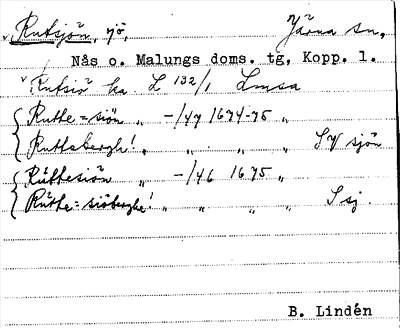 v Rutsjön, sjö, Järna sn,
Nås o. Malungs doms. tg, Kopp. l.
v Rutsiö ha L 132/1 Lmsa
Ruthe=siön „ -/47 1674-75 „
Ruthsbergh! „ „ „ „ S V sjön
Rüthesiön „ -/46 1675 „
Rüthe=siöberghe! „ „ „ „ S sj.
B. Lindén